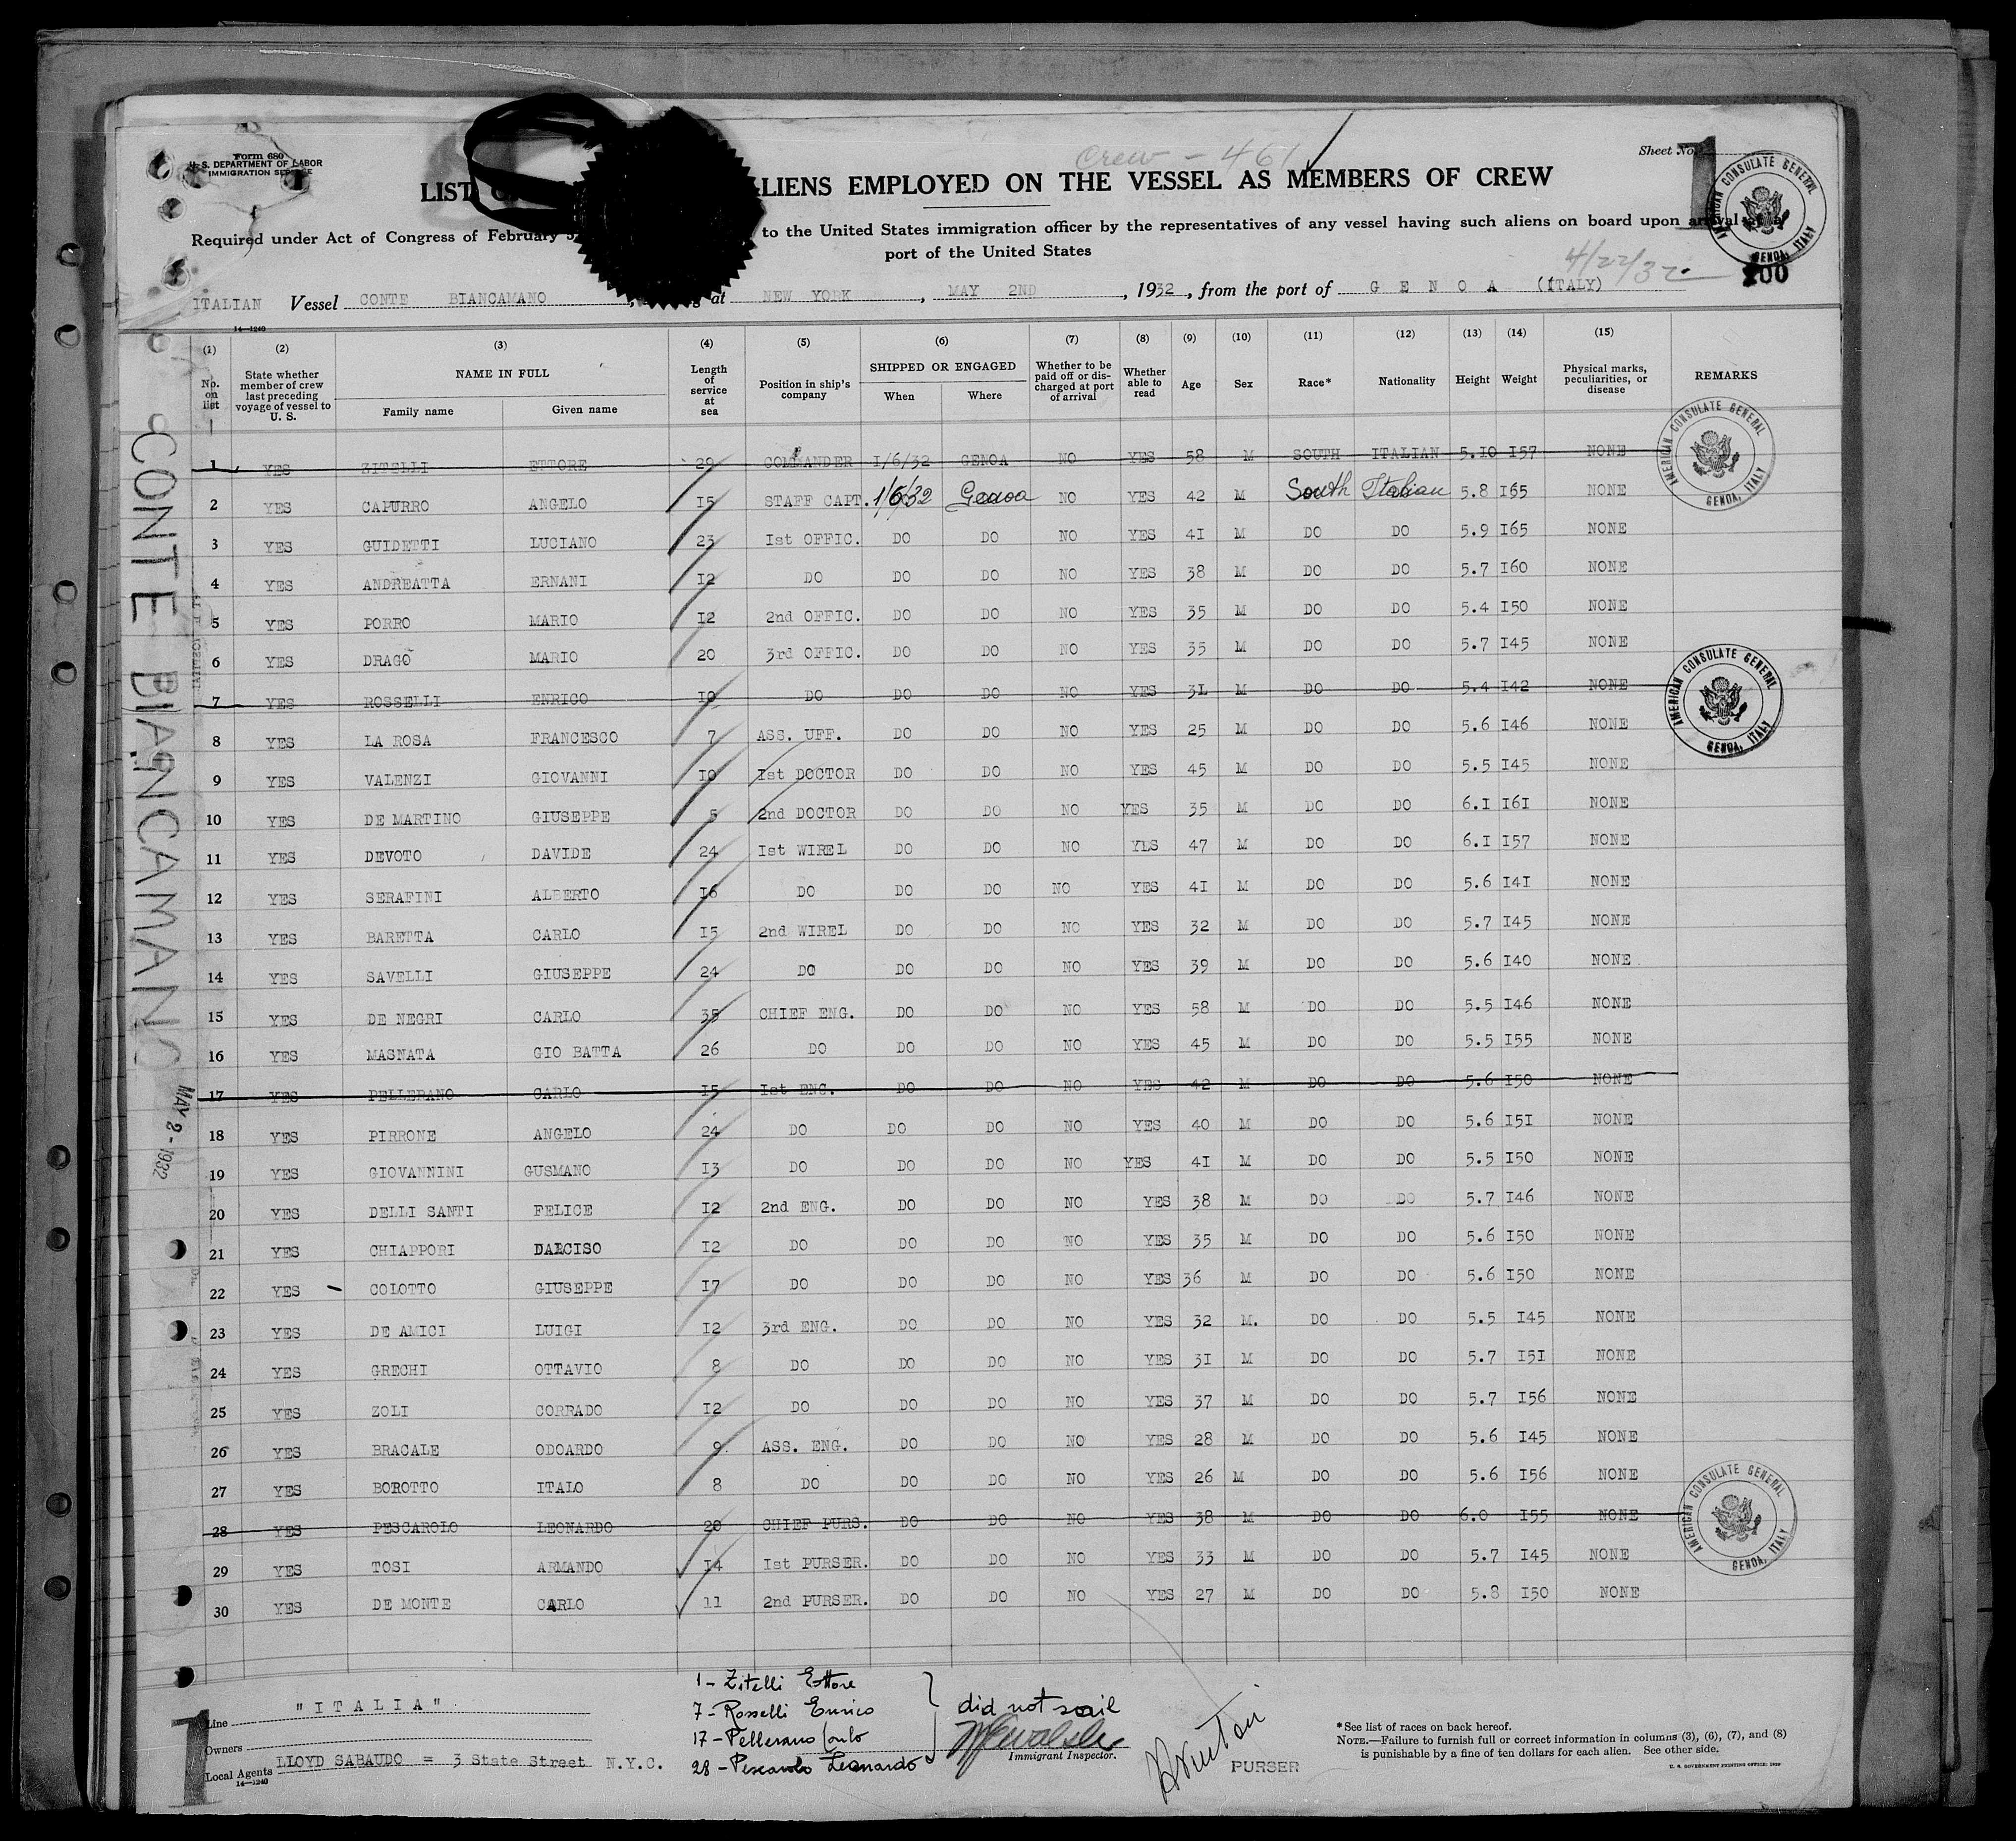 Form 680
U. S. DEPARTMENT OF LABOR
IMMIGRATION SERVICE
Crew - 461
Sheet No. 1
LIST LIENS EMPLOYED ON THE VESSEL AS MEMBERS OF CREW
Required under Act of Congress of February 5 to the United States immigration officer by the representatives of any vessel having such aliens on board upon arrival at a
port of the United States
4/22/32
200
ITALIAN Vessel CONTE BIANCAMANO, at NEW YORK, MAY 2ND, 1932, from the port of GENOA (ITALY)
14—1240
(1) (2) (3) (4) (5) (6) (7) (8) (9) (10) (11) (12) (13) (14) (15)
No. on list | State whether member of crew last preceding voyage of vessel to U. S. | NAME IN FULL Family name Given name | Length of service at sea | Position in ship's company | SHIPPED OR ENGAGED When Where | Whether to be paid off or discharged at port of arrival | Whether able to read | Age | Sex | Race* | Nationality | Height | Weight | Physical marks, peculiarities, or disease | REMARKS
1 YES ZITELLI ETTORE 29 COMMANDER 1/6/32 GENOA NO YES 58 M SOUTH ITALIAN 5.10 157 NONE
2 YES CAPURRO ANGELO 15 STAFF CAPT. 1/6/32 Genoa NO YES 42 M South Italian 5.8 165 NONE
3 YES GUIDETTI LUCIANO 23 Ist OFFIC. DO DO NO YES 41 M DO DO 5.9 165 NONE
4 YES ANDREATTA ERNANI 12 DO DO DO NO YES 38 M DO DO 5.7 160 NONE
5 YES PORRO MARIO 12 2nd OFFIC. DO DO NO YES 35 M DO DO 5.4 150 NONE
6 YES DRAGO MARIO 20 3rd OFFIC. DO DO NO YES 35 M DO DO 5.7 145 NONE
7 YES ROSSELLI ENRICO 10 DO DO DO NO YES 31 M DO DO 5.4 142 NONE
8 YES LA ROSA FRANCESCO 7 ASS. UFF. DO DO NO YES 25 M DO DO 5.6 146 NONE
9 YES VALENZI GIOVANNI 10 Ist DOCTOR DO DO NO YES 45 M DO DO 5.5 145 NONE
10 YES DE MARTINO GIUSEPPE 5 2nd DOCTOR DO DO NO YES 35 M DO DO 6.1 161 NONE
11 YES DEVOTO DAVIDE 24 Ist WIREL DO DO NO YES 47 M DO DO 6.1 157 NONE
12 YES SERAFINI ALBERTO 16 DO DO DO NO YES 41 M DO DO 5.6 141 NONE
13 YES BARETTA CARLO 15 2nd WIREL DO DO NO YES 32 M DO DO 5.7 145 NONE
14 YES SAVELLI GIUSEPPE 24 DO DO DO NO YES 39 M DO DO 5.6 140 NONE
15 YES DE NEGRI CARLO 35 CHIEF ENG. DO DO NO YES 58 M DO DO 5.5 146 NONE
16 YES MASNATA GIO BATTA 26 DO DO DO NO YES 45 M DO DO 5.5 155 NONE
17 YES PELLERANO CARLO 15 Ist ENG. DO DO NO YES 42 M DO DO 5.6 150 NONE
18 YES PIRRONE ANGELO 24 DO DO DO NO YES 40 M DO DO 5.6 151 NONE
19 YES GIOVANNINI GUSMANO 13 DO DO DO NO YES 41 M DO DO 5.5 150 NONE
20 YES DELLI SANTI FELICE 12 2nd ENG. DO DO NO YES 38 M DO DO 5.7 146 NONE
21 YES CHIAPPORI DARCISO 12 DO DO DO NO YES 35 M DO DO 5.6 150 NONE
22 YES COLOTTO GIUSEPPE 17 DO DO DO NO YES 36 M DO DO 5.6 150 NONE
23 YES DE AMICI LUIGI 12 3rd ENG. DO DO NO YES 32 M. DO DO 5.5 145 NONE
24 YES GRECHI OTTAVIO 8 DO DO DO NO YES 31 M DO DO 5.7 151 NONE
25 YES ZOLI CORRADO 12 DO DO DO NO YES 37 M DO DO 5.7 156 NONE
26 YES BRACALE ODOARDO 9 ASS. ENG. DO DO NO YES 28 M DO DO 5.6 145 NONE
27 YES BOROTTO ITALO 8 DO DO DO NO YES 26 M DO DO 5.6 156 NONE
28 YES PESCAROLO LEONARDO 20 CHIEF PURS. DO DO NO YES 38 M DO DO 6.0 155 NONE
29 YES TOSI ARMANDO 14 Ist PURSER. DO DO NO YES 33 M DO DO 5.7 145 NONE
30 YES DE MONTE CARLO 11 2nd PURSER. DO DO NO YES 27 M DO DO 5.8 150 NONE
AMERICAN CONSULATE GENERAL GENOA, ITALY
AMERICAN CONSULATE GENERAL GENOA, ITALY
AMERICAN CONSULATE GENERAL GENOA, ITALY
AMERICAN CONSULATE GENERAL GENOA, ITALY
CONTE BIANCAMANO
MAY 2 - 1932
1
Line "ITALIA"
Owners
Local Agents LLOYD SABAUDO = 3 State Street N.Y.C.
14—1240
1 - Zitelli Ettore
7 - Rosselli Enrico
17 - Pellerano Carlo
28 - Pescarolo Leonardo
did not sail
Immigrant Inspector.
PURSER
*See list of races on back hereof.
NOTE.—Failure to furnish full or correct information in columns (3), (6), (7), and (8)
is punishable by a fine of ten dollars for each alien. See other side.
U. S. GOVERNMENT PRINTING OFFICE: 1929